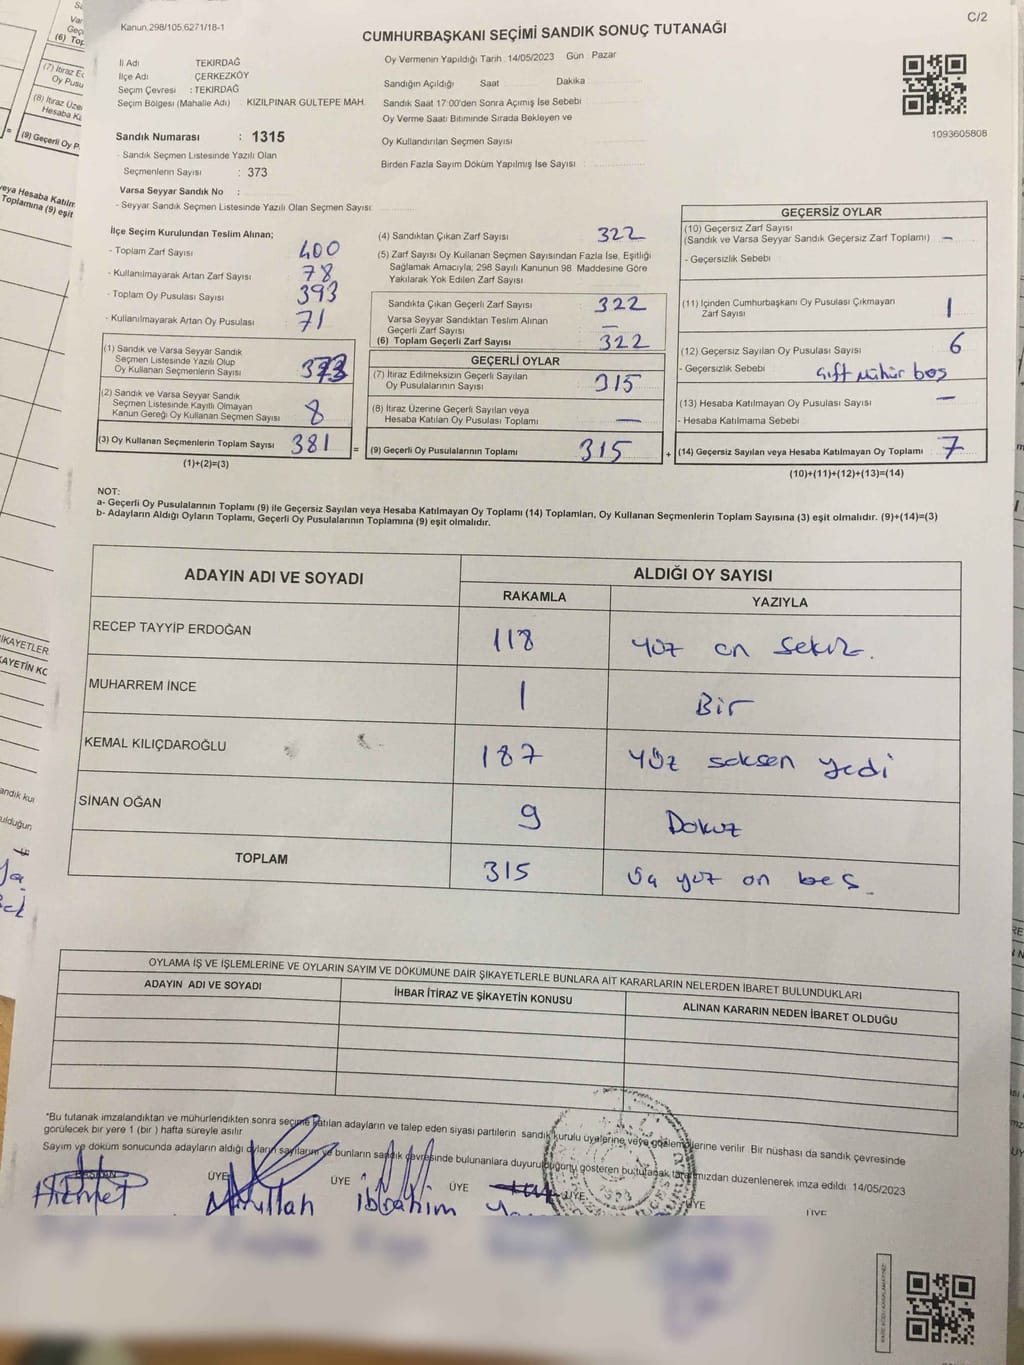 Kanun,298/105,6271/18-1
C/2
CUMHURBAŞKANI SEÇİMİ SANDIK SONUÇ TUTANAĞI
İl Adı TEKİRDAĞ
İlçe Adı ÇERKEZKÖY
Seçim Çevresi : TEKİRDAĞ
Seçim Bölgesi (Mahalle Adı) KIZILPINAR GÜLTEPE MAH.
Sandık Numarası : 1315
- Sandık Seçmen Listesinde Yazılı Olan
Seçmenlerin Sayısı : 373
Varsa Seyyar Sandık No :
- Seyyar Sandık Seçmen Listesinde Yazılı Olan Seçmen Sayısı:
Oy Vermenin Yapıldığı Tarih :14/05/2023 Gün : Pazar
Sandığın Açıldığı Saat Dakika
Sandık Saat 17:00'den Sonra Açımış İse Sebebi
Oy Verme Saati Bitiminde Sırada Bekleyen ve
Oy Kullandırılan Seçmen Sayısı
Birden Fazla Sayım Döküm Yapılmış İse Sayısı :
1093605808
İlçe Seçim Kurulundan Teslim Alınan;
- Toplam Zarf Sayısı 400
- Kullanılmayarak Artan Zarf Sayısı 78
- Toplam Oy Pusulası Sayısı 393
- Kullanılmayarak Artan Oy Pusulası 71
(1) Sandık ve Varsa Seyyar Sandık
Seçmen Listesinde Yazılı Olup
Oy Kullanan Seçmenlerin Sayısı 373
(2) Sandık ve Varsa Seyyar Sandık
Seçmen Listesinde Kayıtlı Olmayan
Kanun Gereği Oy Kullanan Seçmen Sayısı 8
(3) Oy Kullanan Seçmenlerin Toplam Sayısı 381
(1)+(2)=(3)
(4) Sandıktan Çıkan Zarf Sayısı 322
(5) Zarf Sayısı Oy Kullanan Seçmen Sayısından Fazla İse, Eşitliği
Sağlamak Amacıyla; 298 Sayılı Kanunun 98. Maddesine Göre
Yakılarak Yok Edilen Zarf Sayısı
Sandıkta Çıkan Geçerli Zarf Sayısı 322
Varsa Seyyar Sandıktan Teslim Alınan
Geçerli Zarf Sayısı —
(6) Toplam Geçerli Zarf Sayısı 322
GEÇERLİ OYLAR
(7) İtiraz Edilmeksizin Geçerli Sayılan
Oy Pusulalarının Sayısı 315
(8) İtiraz Üzerine Geçerli Sayılan veya
Hesaba Katılan Oy Pusulası Toplamı —
= (9) Geçerli Oy Pusulalarının Toplamı 315
GEÇERSİZ OYLAR
(10) Geçersiz Zarf Sayısı
(Sandık ve Varsa Seyyar Sandık Geçersiz Zarf Toplamı) —
- Geçersizlik Sebebi
(11) İçinden Cumhurbaşkanı Oy Pusulası Çıkmayan
Zarf Sayısı 1
(12) Geçersiz Sayılan Oy Pusulası Sayısı 6
- Geçersizlik Sebebi Çift Mühür boş
(13) Hesaba Katılmayan Oy Pusulası Sayısı —
- Hesaba Katılmama Sebebi
+ (14) Geçersiz Sayılan veya Hesaba Katılmayan Oy Toplamı 7
(10)+(11)+(12)+(13)=(14)
NOT:
a- Geçerli Oy Pusulalarının Toplamı (9) ile Geçersiz Sayılan veya Hesaba Katılmayan Oy Toplamı (14) Toplamları, Oy Kullanan Seçmenlerin Toplam Sayısına (3) eşit olmalıdır. (9)+(14)=(3)
b- Adayların Aldığı Oyların Toplamı, Geçerli Oy Pusulalarının Toplamına (9) eşit olmalıdır.
ADAYIN ADI VE SOYADI
ALDIĞI OY SAYISI
RAKAMLA YAZIYLA
RECEP TAYYİP ERDOĞAN 118 Yüz on sekiz.
MUHARREM İNCE 1 Bir
KEMAL KILIÇDAROĞLU 187 Yüz seksen yedi
SİNAN OĞAN 9 Dokuz
TOPLAM 315 Üç yüz on beş.
OYLAMA İŞ VE İŞLEMLERİNE VE OYLARIN SAYIM VE DÖKÜMÜNE DAİR ŞİKAYETLERLE BUNLARA AİT KARARLARIN NELERDEN İBARET BULUNDUKLARI
ADAYIN ADI VE SOYADI
İHBAR İTİRAZ VE ŞİKAYETİN KONUSU
ALINAN KARARIN NEDEN İBARET OLDUĞU
*Bu tutanak imzalandıktan ve mühürlendikten sonra seçime katılan adayların ve talep eden siyasi partilerin sandık kurulu üyelerine veya gözlemcilerine verilir. Bir nüshası da sandık çevresinde
görülecek bir yere 1 (bir ) hafta süreyle asılır.
Sayım ve döküm sonucunda adayların aldığı oyların sayılarını ve bunların sandık çevresinde bulunanlara duyurulduğunu gösteren bu tutanak tarafımızdan düzenlenerek imza edildi. 14/05/2023
BAŞKAN ÜYE ÜYE ÜYE ÜYE ÜYE ÜYE
Hikmet ibrahim